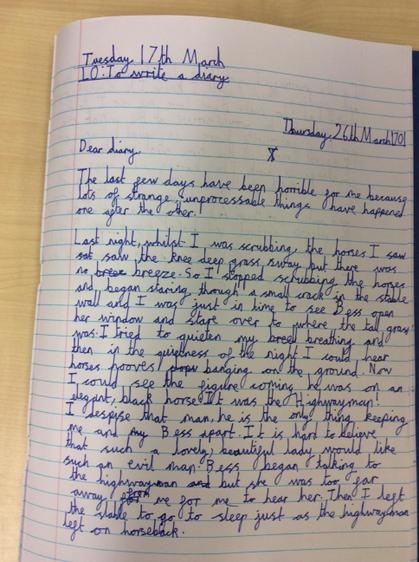 Tuesday 17th March
LO: To write a diary.
Thursday, 26th March 1701
Dear diary,
The last few days have been horrible for me because
lots of strange unprocessable things have happened
one after the other.
Last night, whilst I was scrubbing the horses I saw
sat saw the knee deep grass sway but there was
no breze breeze. So I stopped scrubbing the horses
and began staring through a small crack in the stable
wall and I was just in time to see Bess open
her window and stare over to where the tall grass
was. I tried to quieten my breathing and
then in the quietness of the night I could hear
horses hooves banging on the ground. Now
I could see the figure coming he was on an
elegant, black horse. It was the Highwayman!
I despise that man, he is the only thing keeping
me and my Bess apart. It is hard to believe
that such a lovely, beautiful lady would like
such an evil man. Bess began talking to
the highwayman and but she was too far
away from me for me to hear her. Then I left
the stable to go to sleep just as the highwayman
left on horseback.